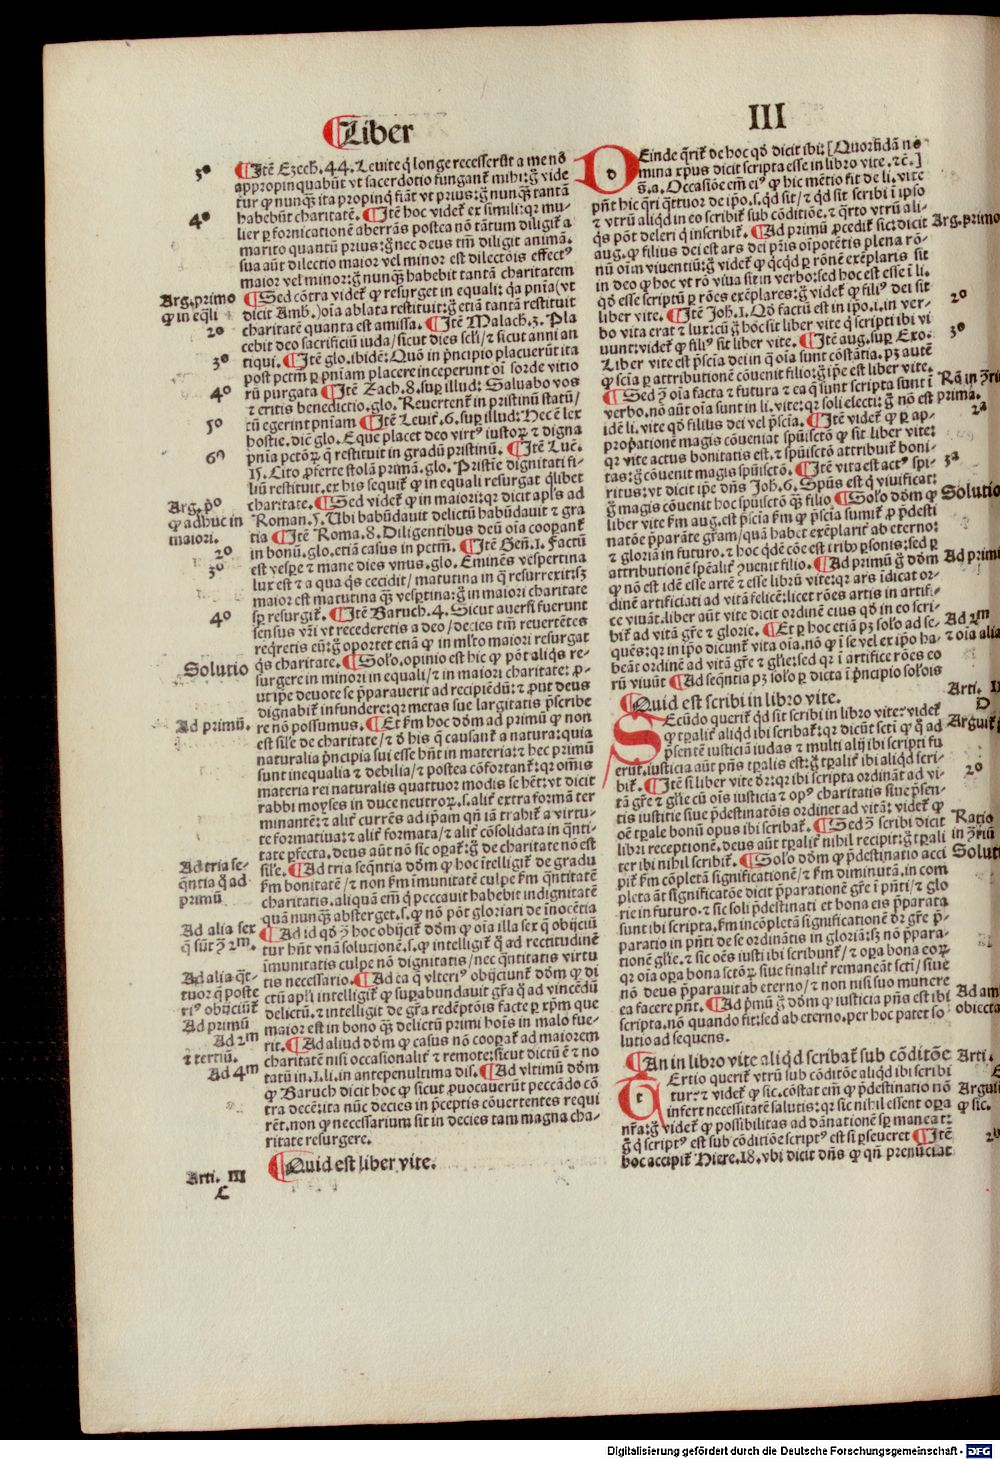 Liber
III
3º
¶Itē Ezech. 44. Leuite q̄ longe recesserūt a me nō
appropinquabūt vt sacerdotio fungant᷑ mihi: g̊ vide
tur ꝙ nunqȝ ita propinq̄ fiāt vt prius: g̊ nunqȝ tantā
4º
habebūt charitatē. ¶Itē hoc videt᷑ ex simili: qꝛ mu-
lier ꝑ fornicationē aberrās postea nō tātum diligit᷑ a
marito quantū prius: g̊ nec deus tm̄ diligit animā.
sua aūt dilectio maior vel minor est dilectōis effectꝰ
maior vel minor: g̊ nunqȝ habebit tantā charitatem
Arg. primo
ꝙ in eq̄li
¶Sed cōtra videt᷑ ꝙ resurget in equali: q̄a pn̄ia (vt
dicit Amb.) oīa ablata restituit: g̊ etiā tantā restituit
2º
charitatē quanta est amissa. ¶Itē Malach. 3. Pla
cebit deo sacrificiū iuda / sicut dies scl̄i / ⁊ sicut anni an
3º
tiqui. ¶Itē glo. ibidē: Quō in p̄ncipio placuerūt ita
post petm̄ ꝑ pn̄iam placere inceperunt oī sorde vitio
4º
rū purgata ¶Itē Zach. 8. suꝑ illud: Saluabo vos
⁊ eritis benedictio. glo. Reuertent᷑ in pristinū statū /
5º
cū egerint pn̄iam ¶Itē Leuit. 6. suꝑ illud: Hec ē lex
hostie. diē glo. Eque placet deo virtꝰ iustoꝝ ⁊ digna
6º
pn̄ia petōꝝ q̄ restituit in gradū pristinū. ¶Itē Luc.
15. Cito ꝓferte stolā primā. glo. Pristie dignitati fi-
liū restituit. ex his sequit᷑ ꝙ in equali resurgat q̄libet
Arg. pº
ꝙ adhuc in
maiori.
charitate. ¶Sed videt᷑ ꝙ in maiori: qꝛ dicit apl̄s ad
Roman. 5. Ubi habūdauit delictū habūdauit ⁊ gra
tia ¶Itē Roma. 8. Diligentibus deū oīa cooꝑant᷑
2º
in bonū. glo. etiā casus in petm̄. ¶Itē Gen̄. 1. Factū
3º
est vesꝑe ⁊ mane dies vnus. glo. Eminēs vespertina
lux est ⁊ a qua q̄s cecidit / matutina in q̄ resurrexit: sꝫ
maior est matutina qȝ vesꝑtina: g̊ in maiori charitate
4º
sꝑ resurgit᷑. ¶Itē Baruch. 4. Sicut auersi fuerunt
sensus vr̄i vt recederetis a deo / decies tm̄ reuertētes
reqretis eū: g̊ oportet etiā ꝙ in ml̄to maiori resurgat
Solutio
q̄s charitate. ¶Solo. opinio est hic ꝙ pōt aliq̄s re-
surgere in minori in equali / ⁊ in maiori charitate: ꝓ-
ut ip̄e deuote se p̄parauerit ad recipiēdū: ⁊ ꝓut deus
dignabit᷑ infundere: qꝛ metas sue largitatis p̄scribe
Ad primū.
re nō possumus. ¶Et ẜm hoc dōm ad primū ꝙ non
est sil̄e de charitate / ⁊ d̓ his q̄ causant᷑ a natura: quia
naturalia p̄ncipia sui esse hn̄t in materia: ⁊ hec primū
sunt inequalia ⁊ debilia / ⁊ postea cōfortant᷑: qꝛ om̄is
materia rei naturalis quattuor modis se hēt: vt dicit
rabbi moyses in duce neutroꝝ. s. alit᷑ extra formā ter
minantē: ⁊ alit᷑ currēs ad ip̄am qn̄ iā trahit᷑ a virtu-
te formatiua: ⁊ alit᷑ formata / ⁊ alit᷑ cōsolidata in q̄nti-
tate ꝑfecta. deus aūt nō sic oꝑat᷑: g̊ de charitate nō est
Ad tria se-
q̄ntia q̄ ad
primū
sil̄e. ¶Ad tria seq̄ntia dōm ꝙ hoc ītelligit᷑ de gradu
ẜm bonitatē / ⁊ non ẜm īmunitatē culpe ẜm q̄ntitatē
charitatis. aliquā em̄ q̄ peccauit habebit indignitatē
quā nunqȝ absterget. s. ꝙ nō pōt gloriari de inocētia
Ad alia sex
q̄ sūt ꝫ 2m.
¶Ad id qd̓ ꝫ hoc obijcit᷑ dōm ꝙ oīa illa sex q̄ obijciū
tur hn̄t vnā solutionē. s. ꝙ intelligit᷑ q̄ ad rectitudinē
īmunitatis culpe nō dignitatis / nec q̄ntitatis virtu
Ad alia q̄t-
tuor q̄ poste
riꝰ obijciūt᷑
Ad primū
tis necessario. ¶Ad ea q̄ vlteriꝰ obijciunt᷑ dōm ꝙ di
ctū apl̄i intelligit᷑ ꝙ suꝑabundauit gr̄a q̄ ad vincēdū
delictū. ⁊ intelligit de gr̄a redēptōis facte ꝑ xp̄m que
maior est in bono qȝ delictū primi hoīs in malo fue-
Ad 2m
⁊ tertiū.
rit. ¶Ad aliud dōm ꝙ casus nō cooꝑat᷑ ad maiorem
charitatē nisi occasionalit᷑ ⁊ remote: sicut dictū ē ⁊ no
Ad 4m
tatū in. 1. li. in antepenultima dis. ¶Ad vltimū dōm
ꝙ Baruch dicit hoc ꝙ sicut ꝓuocauerūt peccādo cō
tra decē: ita nūc decies in p̄ceptis cōuertentes requi
rēt. non ꝙ necessarium sit in decies tam magna cha-
ritate resurgere.
Arti. III
C
¶Quid est liber vite.
DEinde q̄rit᷑ de hoc qd̓ dicit ibi: [Quorūdā no
mina xp̄us dicit scripta esse in libro vite. ⁊c̄.]
§. a. Occasiōe em̄ eiꝰ ꝙ hic mētio fit de li. vite
pn̄t hic q̄ri q̄ttuor de ip̄o. s. qd̓ sit / ⁊ qd̓ sit scribi ī ip̄o
⁊ vtrū aliqd̓ in eo scribit᷑ sub cōditiōe. ⁊ q̄rto vtrū ali-
Arg. primo
q̄s pōt deleri q̄ inscribit᷑. ¶Ad primū ꝓcedit᷑ sic: dicit
aug. ꝙ filius dei est ars dei pr̄is oīpotētis plena rō-
nū oīm viuentiū: g̊ videt᷑ ꝙ q̄cqd̓ ꝑ rōnē exēplaris sit
in deo ꝙ hoc vt rō viua sit in verbo: sed hoc est esse ī li.
qd̓ esse scriptū ꝑ rōes exēplares: g̊ videt᷑ ꝙ filiꝰ dei sit
2º
liber vite. ¶Itē Joh. 1. Qd̓ factū est in ip̄o. i. in ver-
bo vita erat ⁊ lux: cū g̊ hoc sit liber vite q̄ scripti ibi vi
3º
uunt: videt᷑ ꝙ filiꝰ sit liber vite. ¶Itē aug. suꝑ Exo.
Liber vite est p̄scia dei in q̄ oīa sunt cōstātia. pꝫ autē
ꝙ scia ꝑ attributionē cōuenit filio: g̊ ip̄e est liber vite.
Rā in ꝫriū
prima.
¶Sed ꝫ oīa facta ⁊ futura ⁊ ea q̄ sunt scripta sunt ī
verbo. nō aūt oīa sunt in li. vite: qꝛ soli electi: g̊ nō est
2ª
idē li. vite qd̓ filius dei vel p̄scia. ¶Itē videt᷑ ꝙ ꝑ ap-
propationē magis cōueniat spūiscto ꝙ sit liber vite:
qꝛ vite actus bonitatis est. ⁊ spūiscto attribuit᷑ boni-
3ª
tas: g̊ cōuenit magis spūiscto. ¶Itē vita est actꝰ spi-
ritus: vt dicit ip̄e dn̄s Joh. 6. Spūs est q̄ viuificat:
Solutio
g̊ magis cōuenit hoc spūiscto qȝ filio ¶Solo dōm ꝙ
liber vite ẜm aug. est p̄scia ẜm ꝙ p̄scia sumit᷑ ꝓ p̄desti
natōe p̄parāte gr̄am / quā habet exēplarit᷑ ab eterno:
⁊ gloriā in futuro. ⁊ hoc qd̓ē cōe est tribꝰ ꝑsonis: sed ꝑ
Ad primū
attributionē spēalit᷑ ꝯuenit filio. ¶Ad primū g̊ dōm
ꝙ nō est idē esse artē ⁊ esse librū vite: qꝛ ars īdicat or-
dinē artificiati ad vitā felicē: licet rōes artis in artifi-
ce viuāt. liber aūt vite dicit ordinē eius qd̓ in eo scri-
Ad 2m
⁊ oīa alia
bit᷑ ad vitā gr̄e ⁊ glorie. ¶Et ꝑ hoc etiā pꝫ solo ad se-
quēs: qꝛ in ip̄o dicunt᷑ vita oīa. nō ꝙ ī se vel ex ip̄o ha-
beāt ordinē ad vitā gr̄e ⁊ gl̄ie: sed qꝛ ī artifice rōes eo
rū viuūt ¶Ad seq̄ntia pꝫ solo ꝑ dicta ī p̄ncipio solois
Arti. II
D
¶Quid est scribi in libro vite.
Arguit᷑
SEcūdo querit᷑ qd̓ sit scribi in libro vite: videt᷑
ꝙ tꝑalit᷑ aliqd̓ ibi scribat᷑: qꝛ dicūt scti ꝙ q̄ ad
p̄sentē iusticiā iudas ⁊ multi alij ibi scripti fu
erūt. iusticia aūt pn̄s tꝑalis est: g̊ tꝑalit᷑ ibi aliqd̓ scri-
2º
bit᷑. ¶Itē si liber vite dr̄: qꝛ ibi scripta ordināt ad vi-
tā gr̄e ⁊ gl̄ie cū oīs iusticia ⁊ opꝰ charitatis siue p̄sen-
tis iustitie siue p̄destinatōis ordinet ad vitā: videt᷑ ꝙ
Ratio
in ꝫriū
oē tꝑale bonū opus ibi scribat᷑. ¶Sed ꝫ scribi dicit
libri receptionē. deus aūt tꝑalit᷑ nihil recipit: g̊ tꝑali
Soluti
ter ibi nihil scribit᷑. ¶Solo dōm ꝙ p̄destinatio acci
pit᷑ ẜm cōpletā significationē / ⁊ ẜm diminutā. in com
pleta āt significatōe dicit p̄parationē gr̄e ī pn̄ti / ⁊ glo
rie in futuro. ⁊ sic soli p̄destinati et bona eis p̄parata
sunt ibi scripta. ẜm incōpletā significationē dr̄ gr̄e p̄-
paratio in pn̄ti de se ordinātis in gloriā: sꝫ nō p̄para-
tionē gl̄ie. ⁊ sic oēs iusti ibi scribunt᷑ / ⁊ oꝑa bona eoꝝ
qꝛ oīa oꝑa bona sctōꝝ siue finalit᷑ remaneāt scti / siue
nō deus p̄parauit ab eterno / ⁊ non nisi suo munere
Ad am
obiecta
ea facere pn̄t. ¶Ad p̄mū g̊ dōm ꝙ iusticia pn̄s est ibi
scripta. nō quando fit: sed ab eterno. per hoc patet so
lutio ad sequens.
Arti.
¶An in libro vite aliqd̓ scribat᷑ sub cōditōe
Argui
ꝙ sic.
TErtio querit᷑ vtrū sub cōditōe aliqd̓ ibi scribi
tur: ⁊ videt᷑ ꝙ sic. cōstat em̄ ꝙ p̄destinatio nō
infert necessitatē salutis: qꝛ sic nihil essent oꝑa
nr̄a: g̊ videt᷑ ꝙ possibilitas ad dānationē sꝑ maneat:
2º
g̊ q̄ scriptꝰ est sub cōditiōe scriptꝰ est si ꝑseueret ¶Itē
hoc accipit᷑ Hiere. 18. vbi dicit dn̄s ꝙ qn̄ prenūciat
Digitalisierung gefördert durch die Deutsche Forschungsgemeinschaft - DFG